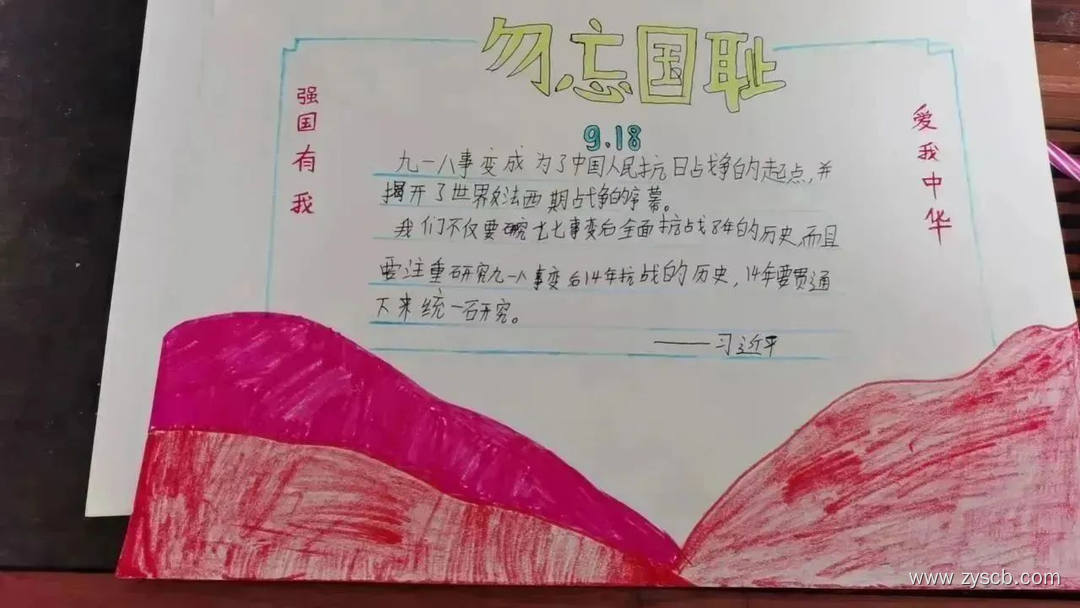 勿忘国耻
9.18
强国有我
爱我中华
九一八事变成为了中国人民抗日占战争的起点,并
揭开了世界反法西期战争的序幕。
我们不仅要研究七七事变后全面抗战8年的历史,而且
要注重研究九一八事变后14年抗战的历史,14年要贯通
下来统一研究。
——习近平
www.zyscb.com